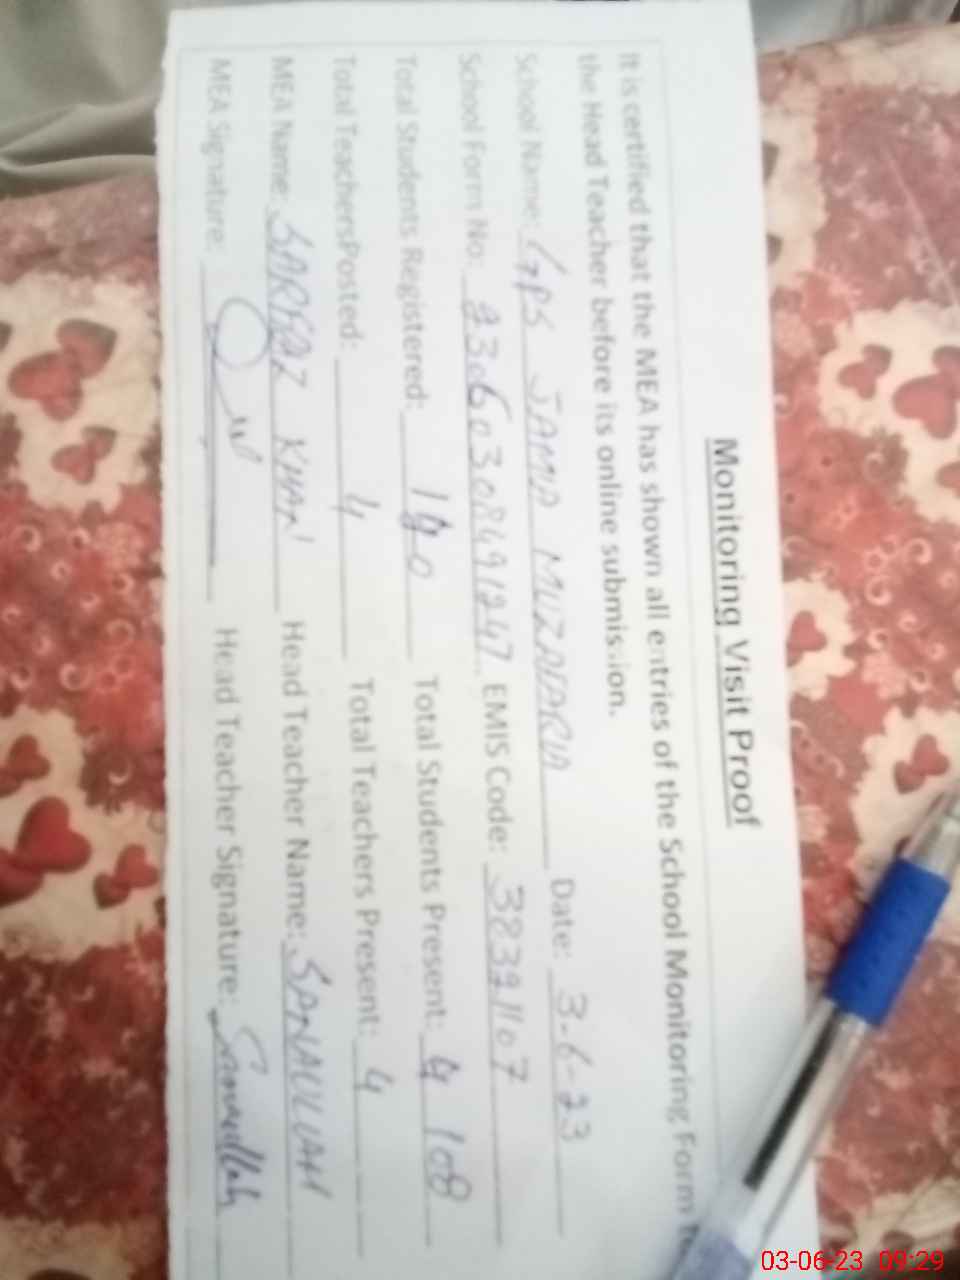 Monitoring Visit Proof
It is certified that the MEA has shown all entries of the School Monitoring Form to
the Head Teacher before its online submission.
School Name: GPS JAMIA MUZAFARIA Date: 3-6-23
School Form No: 23060308491247 EMIS Code: 38391107
Total Students Registered: 140 Total Students Present: 108
Total TeachersPosted: 4 Total Teachers Present: 4
MEA Name: SARFRAZ KHAN Head Teacher Name: SANAULLAH
MEA Signature: Head Teacher Signature: Sanaullah
03-06-23 09:29